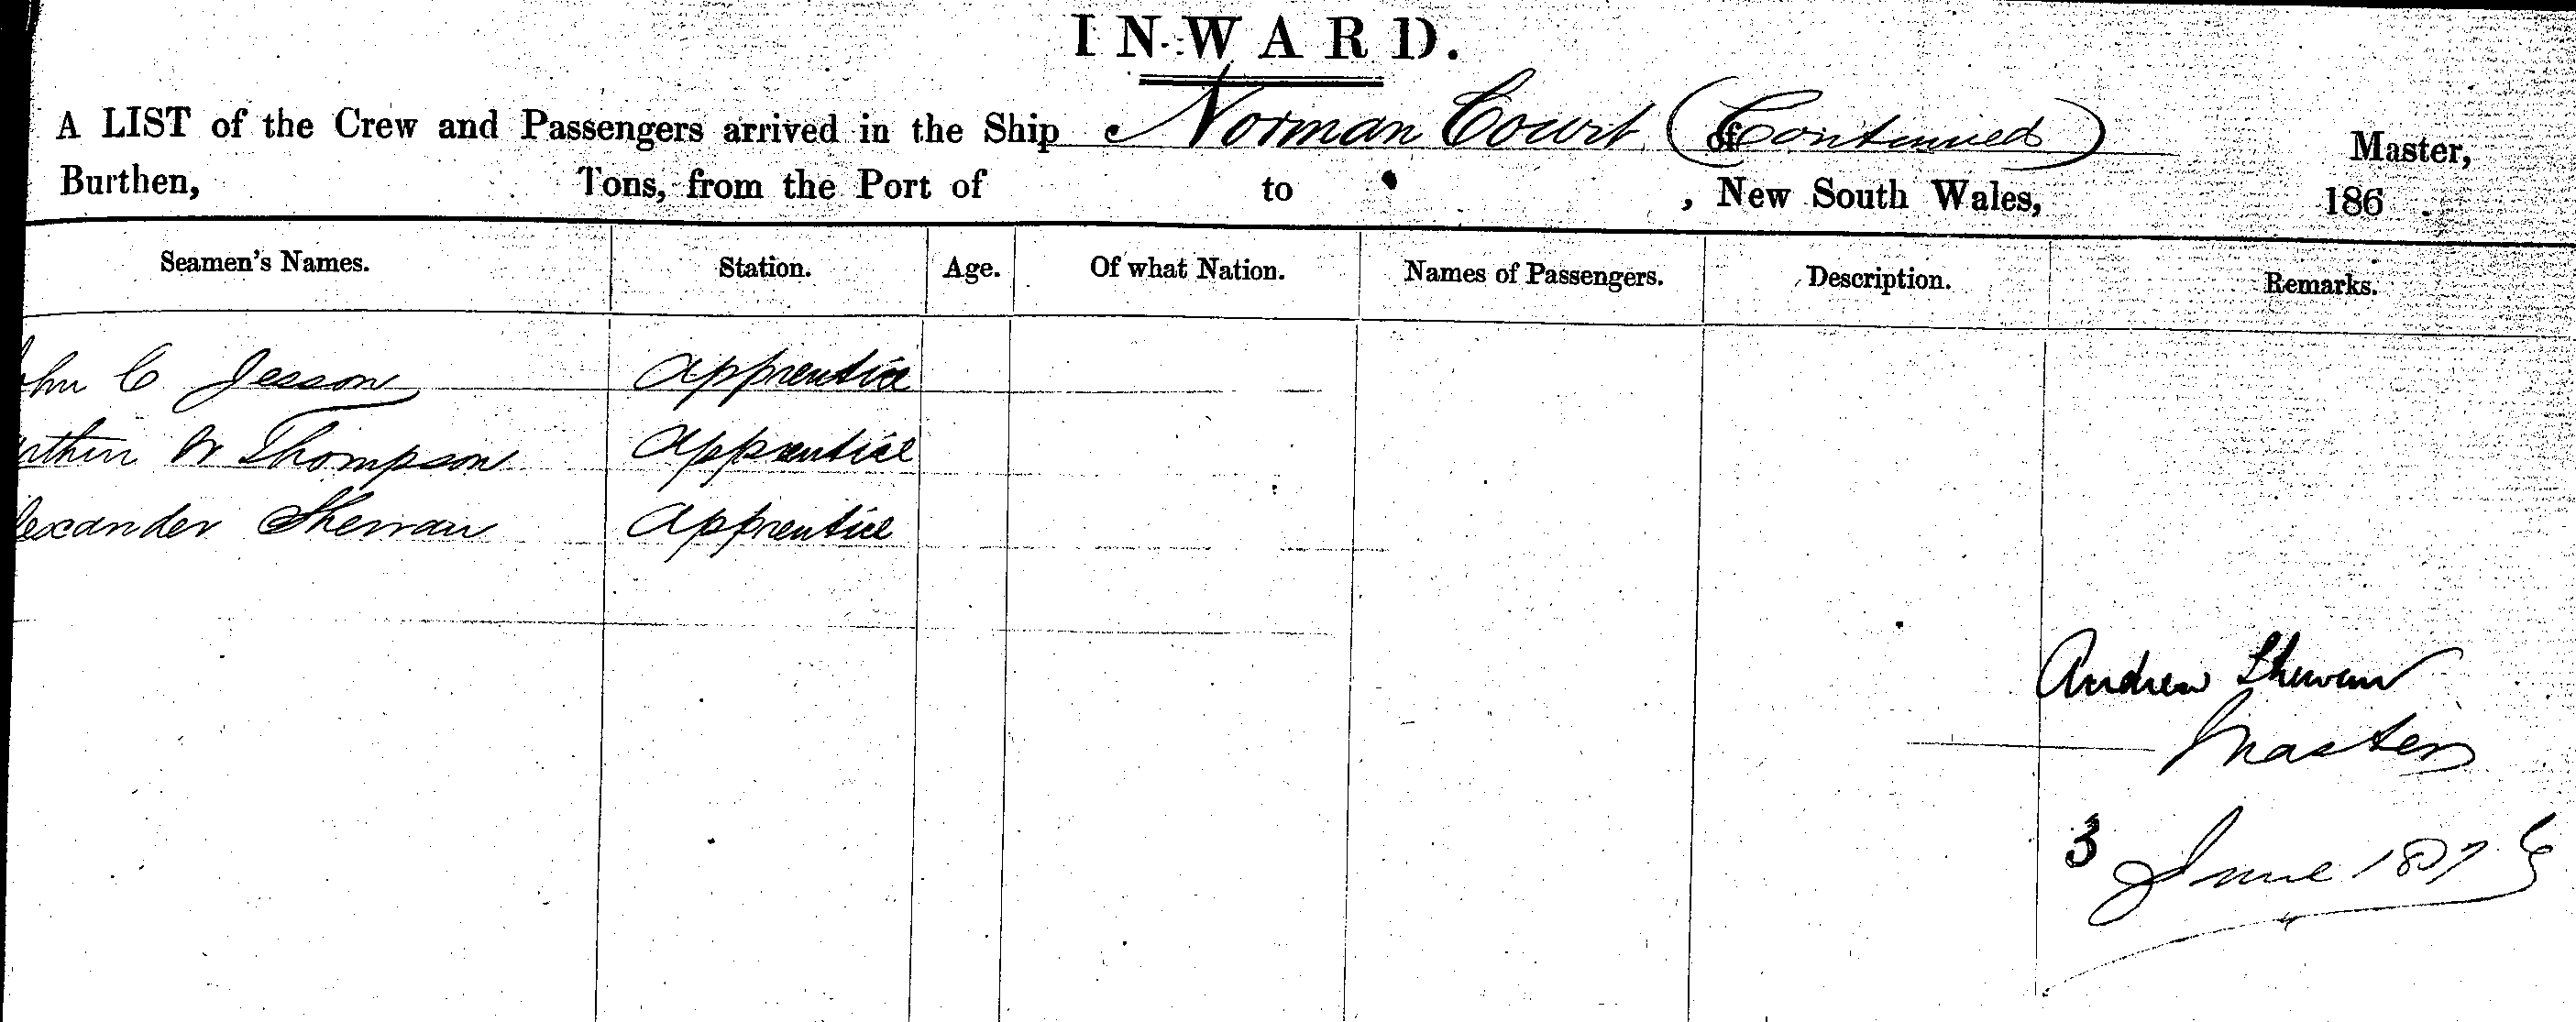 INWARD.
A LIST of the Crew and Passengers arrived in the Ship Norman Court of (Continued) Master,
Burthen, Tons, from the Port of to , New South Wales, 186 .
Seamen's Names. Station. Age. Of what Nation. Names of Passengers. Description. Remarks.
ohn C Jesson Apprentice
rthur W Thompson Apprentice
lexander Shewan Apprentice
Andrew Shewan
Master
3 June 187